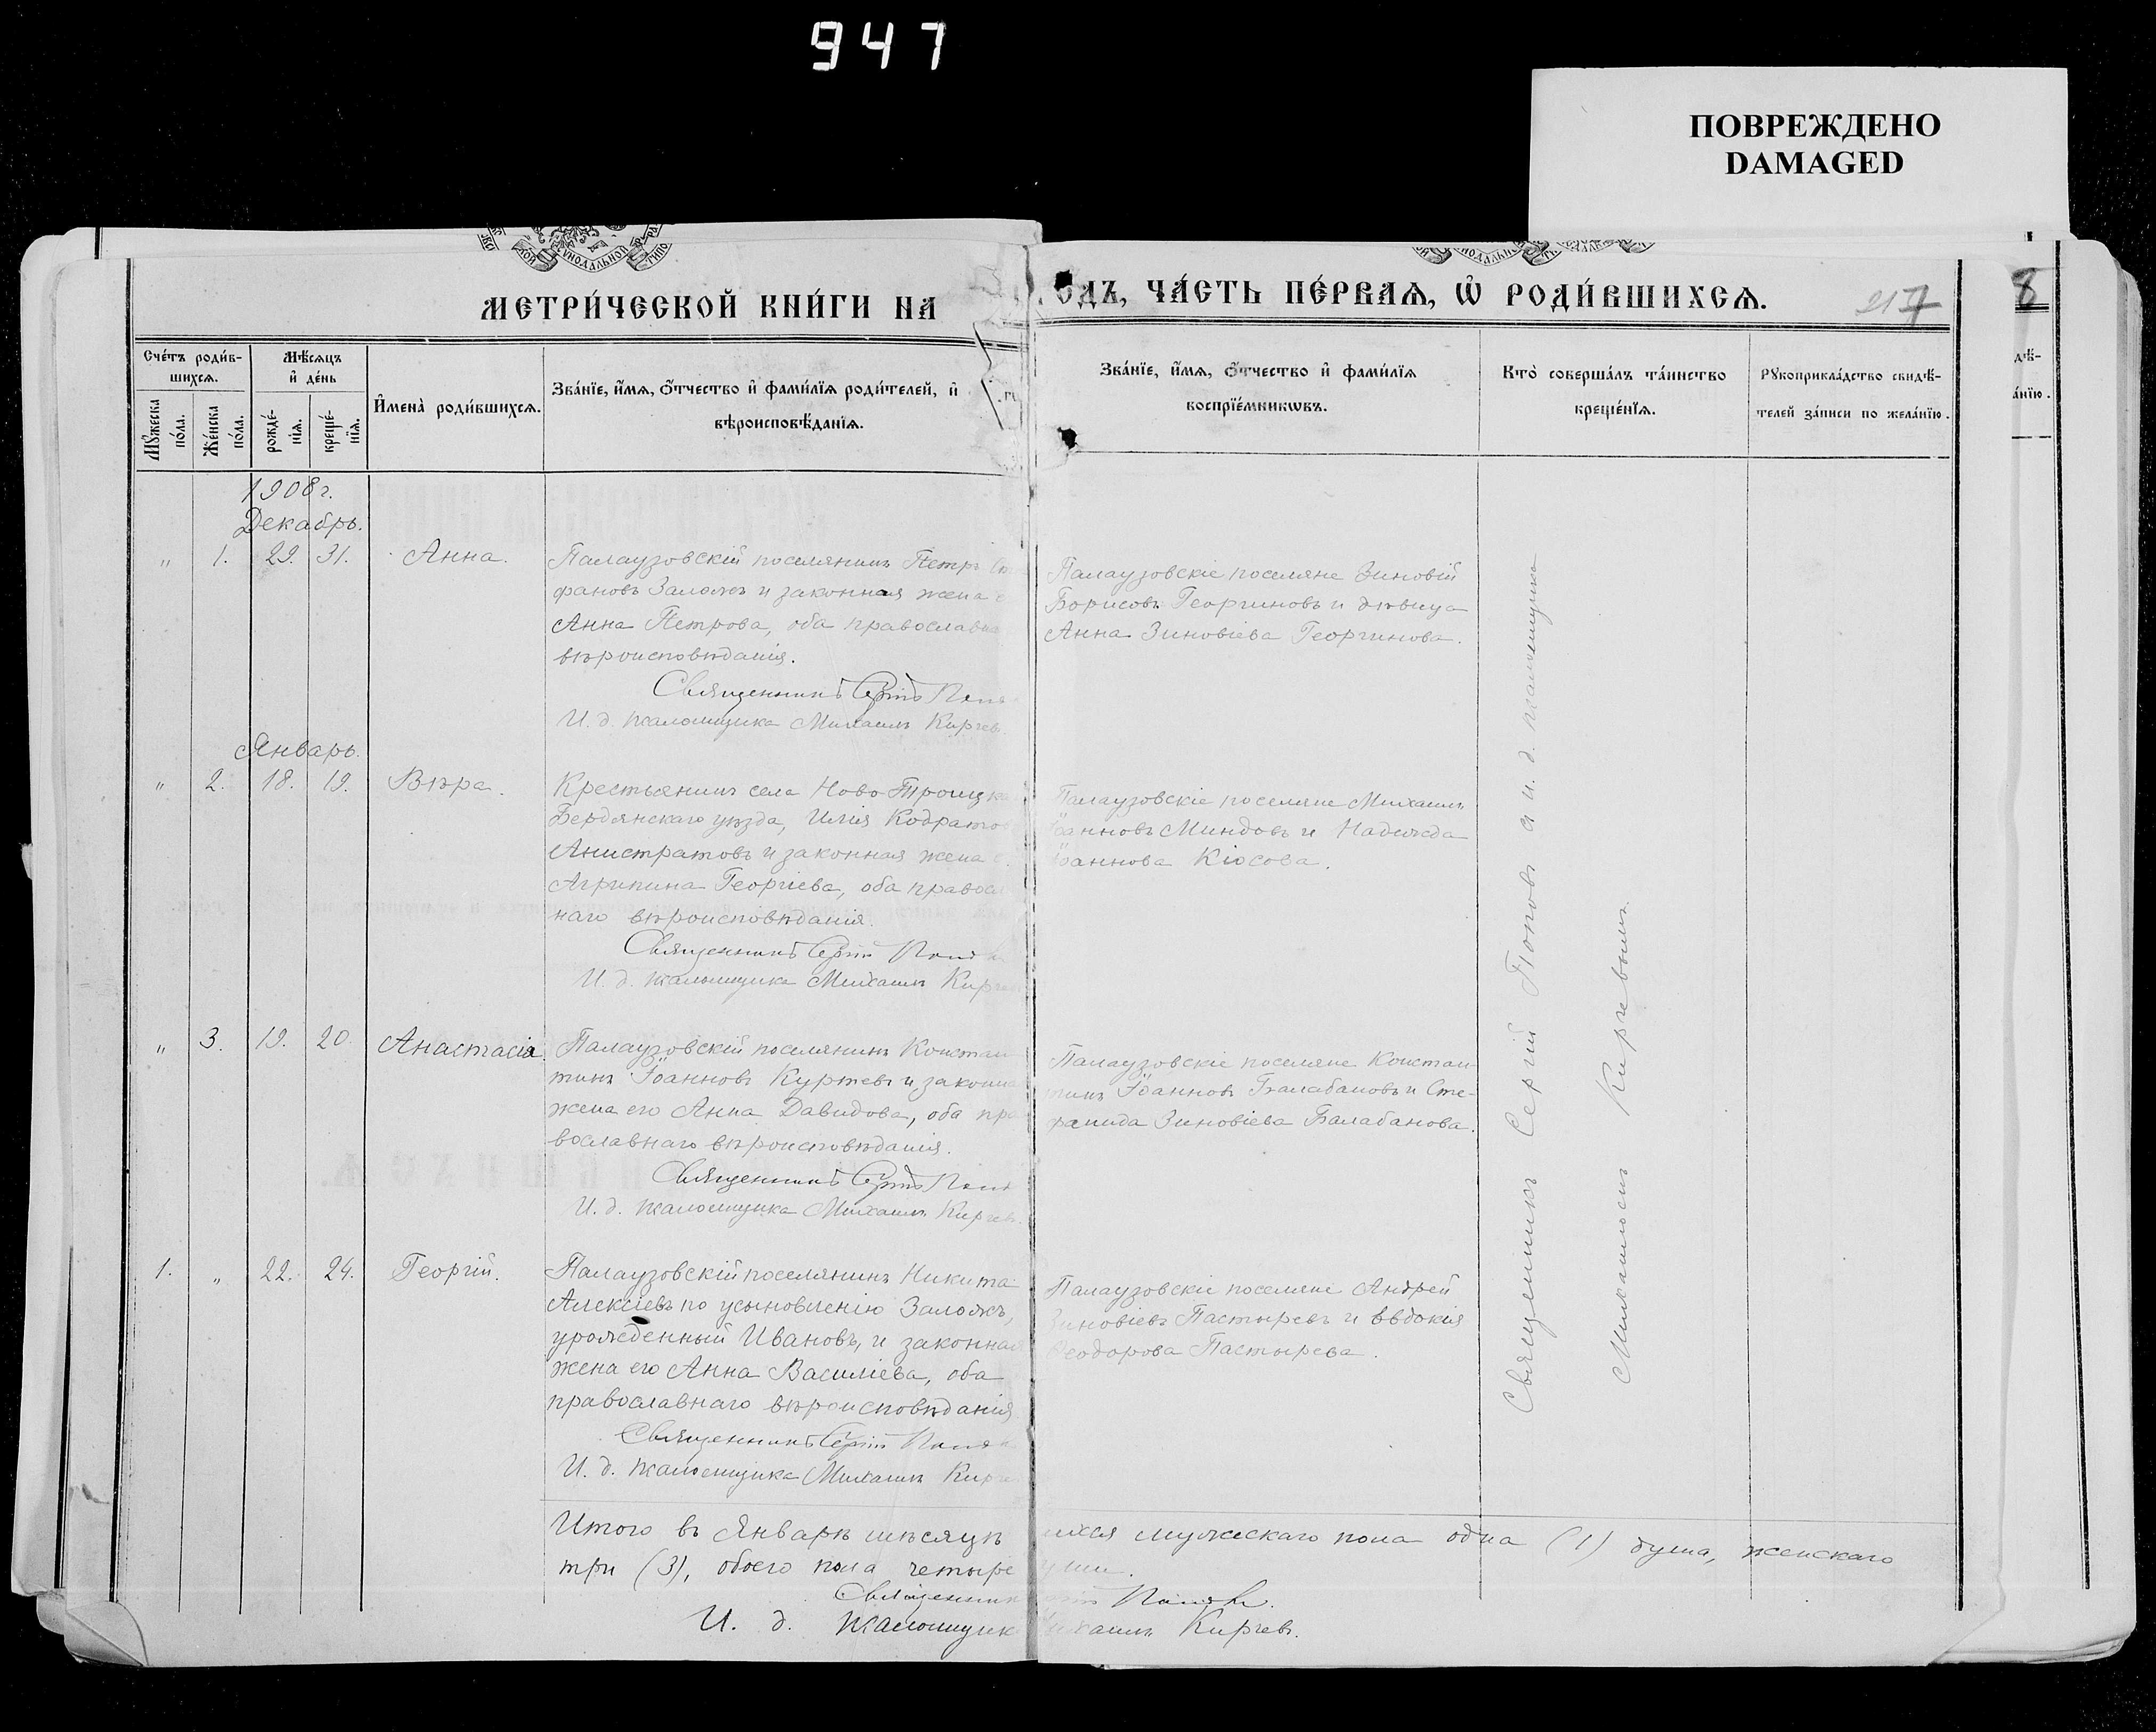 947
ПОВРЕЖДЕНО
DAMAGED
МЕТРИ́ЧЕСКОЙ КНИ́ГИ НА
ОДЪ, ЧА́СТЬ ПЕ́РВАЯ, Ѿ РОДИ́ВШИХСЯ.
217
8
Сче́тъ роди́в-
шихся.
Мѣ́сяцъ
и҆ де́нь
Мꙋ́жеска по́ла.
Же́нска по́ла.
рожде́-
нїя.
креще́-
нїя.
И҆мена̀ роди́вшихся.
Зва́нїе, и҆́мя, ѻ҆́тчество и҆ фами́лїя роди́телей, и҆
вѣроисповѣ́данїя.
Зва́нїе, и҆́мя, ѻ҆́тчество и҆ фами́лїя
воспрїе́мникѡвъ.
Кто̀ соверша́лъ та́инство
креще́нїя.
Рꙋкоприкла́дство свидѣ́-
телей за́писи по жела́нїю.
1908 г.
Декабрь.
" 1. 29. 31. Анна.
Палаузовскій поселянинъ Петръ Сте
фановъ Заложъ и законная жена е
Анна Петрова, оба православна
вѣроисповѣданія.
Священникъ Сергій Попо
И. д. псаломщика Михаилъ Киргев
Палаузовскіе поселяне Зиновій
Борисовъ Георгиновъ и дѣвица
Анна Зиновіева Георгинова.
Январь.
" 2. 18. 19. Вѣра.
Крестьянинъ села Ново-Троицка
Бердянскаго уѣзда, Илія Кодратов
Анистратовъ и законная жена е
Агрипина Георгіева, оба правосл
наго вѣроисповѣданія.
Священникъ Сергій Попов
И. д. псаломщика Михаилъ Кирге
Палаузовскіе поселяне Михаилъ
Іоанновъ Миндовъ и Надежда
Іоаннова Кіосова.
" 3. 19. 20. Анастасія.
Палаузовскій поселянинъ Констан
тинъ Іоанновъ Куртевъ и законна
жена его Анна Давидова, оба пра
вославнаго вѣроисповѣданія.
Священникъ Сергій Попо
И. д. псаломщика Михаилъ Киргев
Палаузовскіе поселяне Констан-
тинъ Іоанновъ Балабановъ и Сте-
фанида Зиновіева Балабанова.
1. " 22. 24. Георгій.
Палаузовскій поселянинъ Никита
Алексіевъ по усыновленію Заложъ,
урожденный Ивановъ, и законная
жена его Анна Василіева, оба
православнаго вѣроисповѣданія
Священникъ Сергій Попов
И. д. псаломщика Михаилъ Кирге
Палаузовскіе поселяне Андрей
Зиновіевъ Пастыревъ и Евдокія
Ѳеодорова Пастырева.
Священникъ Сергій Поповъ а и. д. псаломщика
Михаиломъ Киргевымъ.
Итого въ Январѣ мѣсяцѣ ихся мужескаго пола одна (1) душа, женскаго
три (3), обоего пола четыре уши.
Священник ргій Поповъ.
И. д. псаломщик Михаилъ Киргевъ.